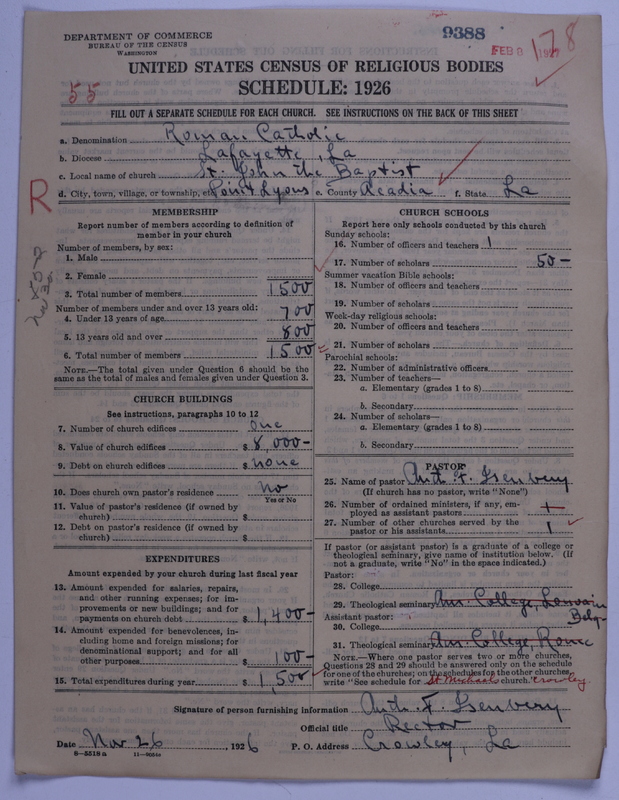 9388
DEPARTMENT OF COMMERCE
BUREAU OF THE CENSUS
WASHINGTON
FEB 8 1927
178
UNITED STATES CENSUS OF RELIGIOUS BODIES
55
SCHEDULE: 1926
FILL OUT A SEPARATE SCHEDULE FOR EACH CHURCH. SEE INSTRUCTIONS ON THE BACK OF THIS SHEET
a. Denomination Roman Catholic
b. Diocese Lafayette, La
c. Local name of church St. John the Baptist
d. City, town, village, or township, etc. Point Lyons e. County Acadia f. State La
R
MEMBERSHIP
Report number of members according to definition of
member in your church
Number of members, by sex:
1. Male
2. Female
3. Total number of members 1500
Number of members under and over 13 years old:
4. Under 13 years of age 700
5. 13 years old and over 800
6. Total number of members 1500
NOTE.—The total given under Question 6 should be
same as the total of males and females given under Question 3.
CHURCH BUILDINGS
See instructions, paragraphs 10 to 12
7. Number of church edifices one
8. Value of church edifices $ 8,000-
9. Debt on church edifices $ none
10. Does church own pastor's residence No
Yes or No
11. Value of pastor's residence (if owned by
church) $
12. Debt on pastor's residence (if owned by
church) $
EXPENDITURES
Amount expended by your church during last fiscal year
13. Amount expended for salaries, repairs,
and other running expenses; for im-
provements or new buildings; and for
payments on church debt $ 1,400-
14. Amount expended for benevolences, in-
cluding home and foreign missions; for
denominational support; and for all
other purposes $ 100-
15. Total expenditures during year $ 1,500
CHURCH SCHOOLS
Report here only schools conducted by this church
Sunday schools:
16. Number of officers and teachers 1
17. Number of scholars 50-
Summer vacation Bible schools:
18. Number of officers and teachers
19. Number of scholars
Week-day religious schools:
20. Number of officers and teachers
21. Number of scholars
Parochial schools:
22. Number of administrative officers
23. Number of teachers—
a. Elementary (grades 1 to 8)
b. Secondary
24. Number of scholars—
a. Elementary (grades 1 to 8)
b. Secondary
PASTOR
25. Name of pastor Anth. F. Isenberg
(If church has no pastor, write "None")
26. Number of ordained ministers, if any, em-
ployed as assistant pastors 1
27. Number of other churches served by the
pastor or his assistants 1
If pastor (or assistant pastor) is a graduate of a college or
theological seminary, give name of institution below. (If
not a graduate, write "No" in the space indicated.)
Pastor:
28. College
29. Theological seminary Am. College, Louvain
Belg-
Assistant pastor:
30. College
31. Theological seminary Am. College, Rome
NOTE.—Where one pastor serves two or more churches,
Questions 28 and 29 should be answered only on the schedule
for one of the churches; on the schedules for the other churches,
write "See schedule for St Michaels church. Crowley
Signature of person furnishing information Anth. F. Isenberg
Official title Rector
Date Nov 26, 1926 P. O. Address Crowley, La
8—5518a 11—9064a